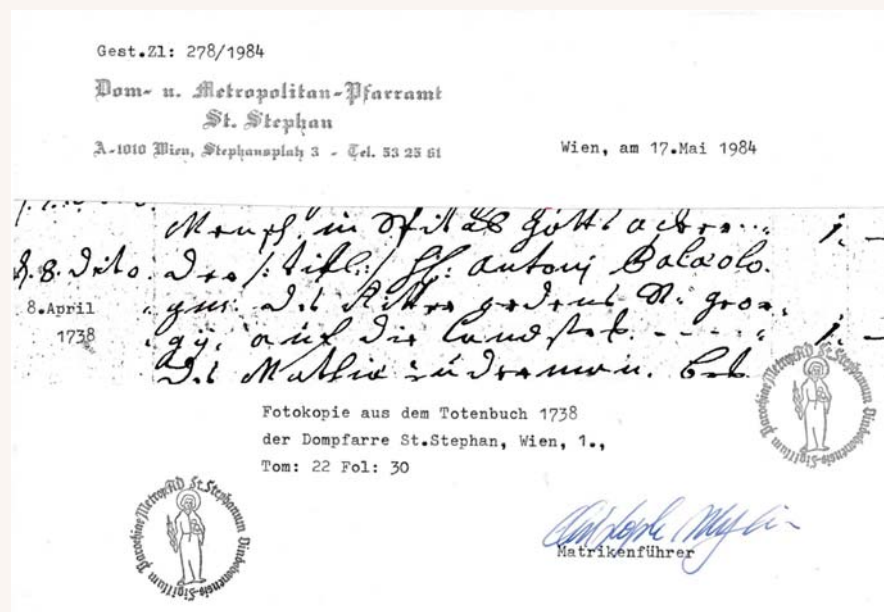 Gest.Zl: 278/1984
Dom- u. Metropolitan-Pfarramt
St. Stephan
A-1010 Wien, Stephansplatz 3 - Tel. 53 25 61
Wien, am 17.Mai 1984
in Spitäs Gotts acker
8. dito. Der /: Titl :/ H: Antoni Balaolo.
8.April
gus des Ritter ordens St: Geor.
1738
gÿ: auf die Landstrl. 1. —
Des Mathia
Fotokopie aus dem Totenbuch 1738
der Dompfarre St.Stephan, Wien, 1.,
Tom: 22 Fol: 30
Parochiae Metrop RD St. Stephanum Vindobonensis Sigillum
Parochiae Metrop RD St. Stephanum Vindobonensis Sigillum
Matrikenführer